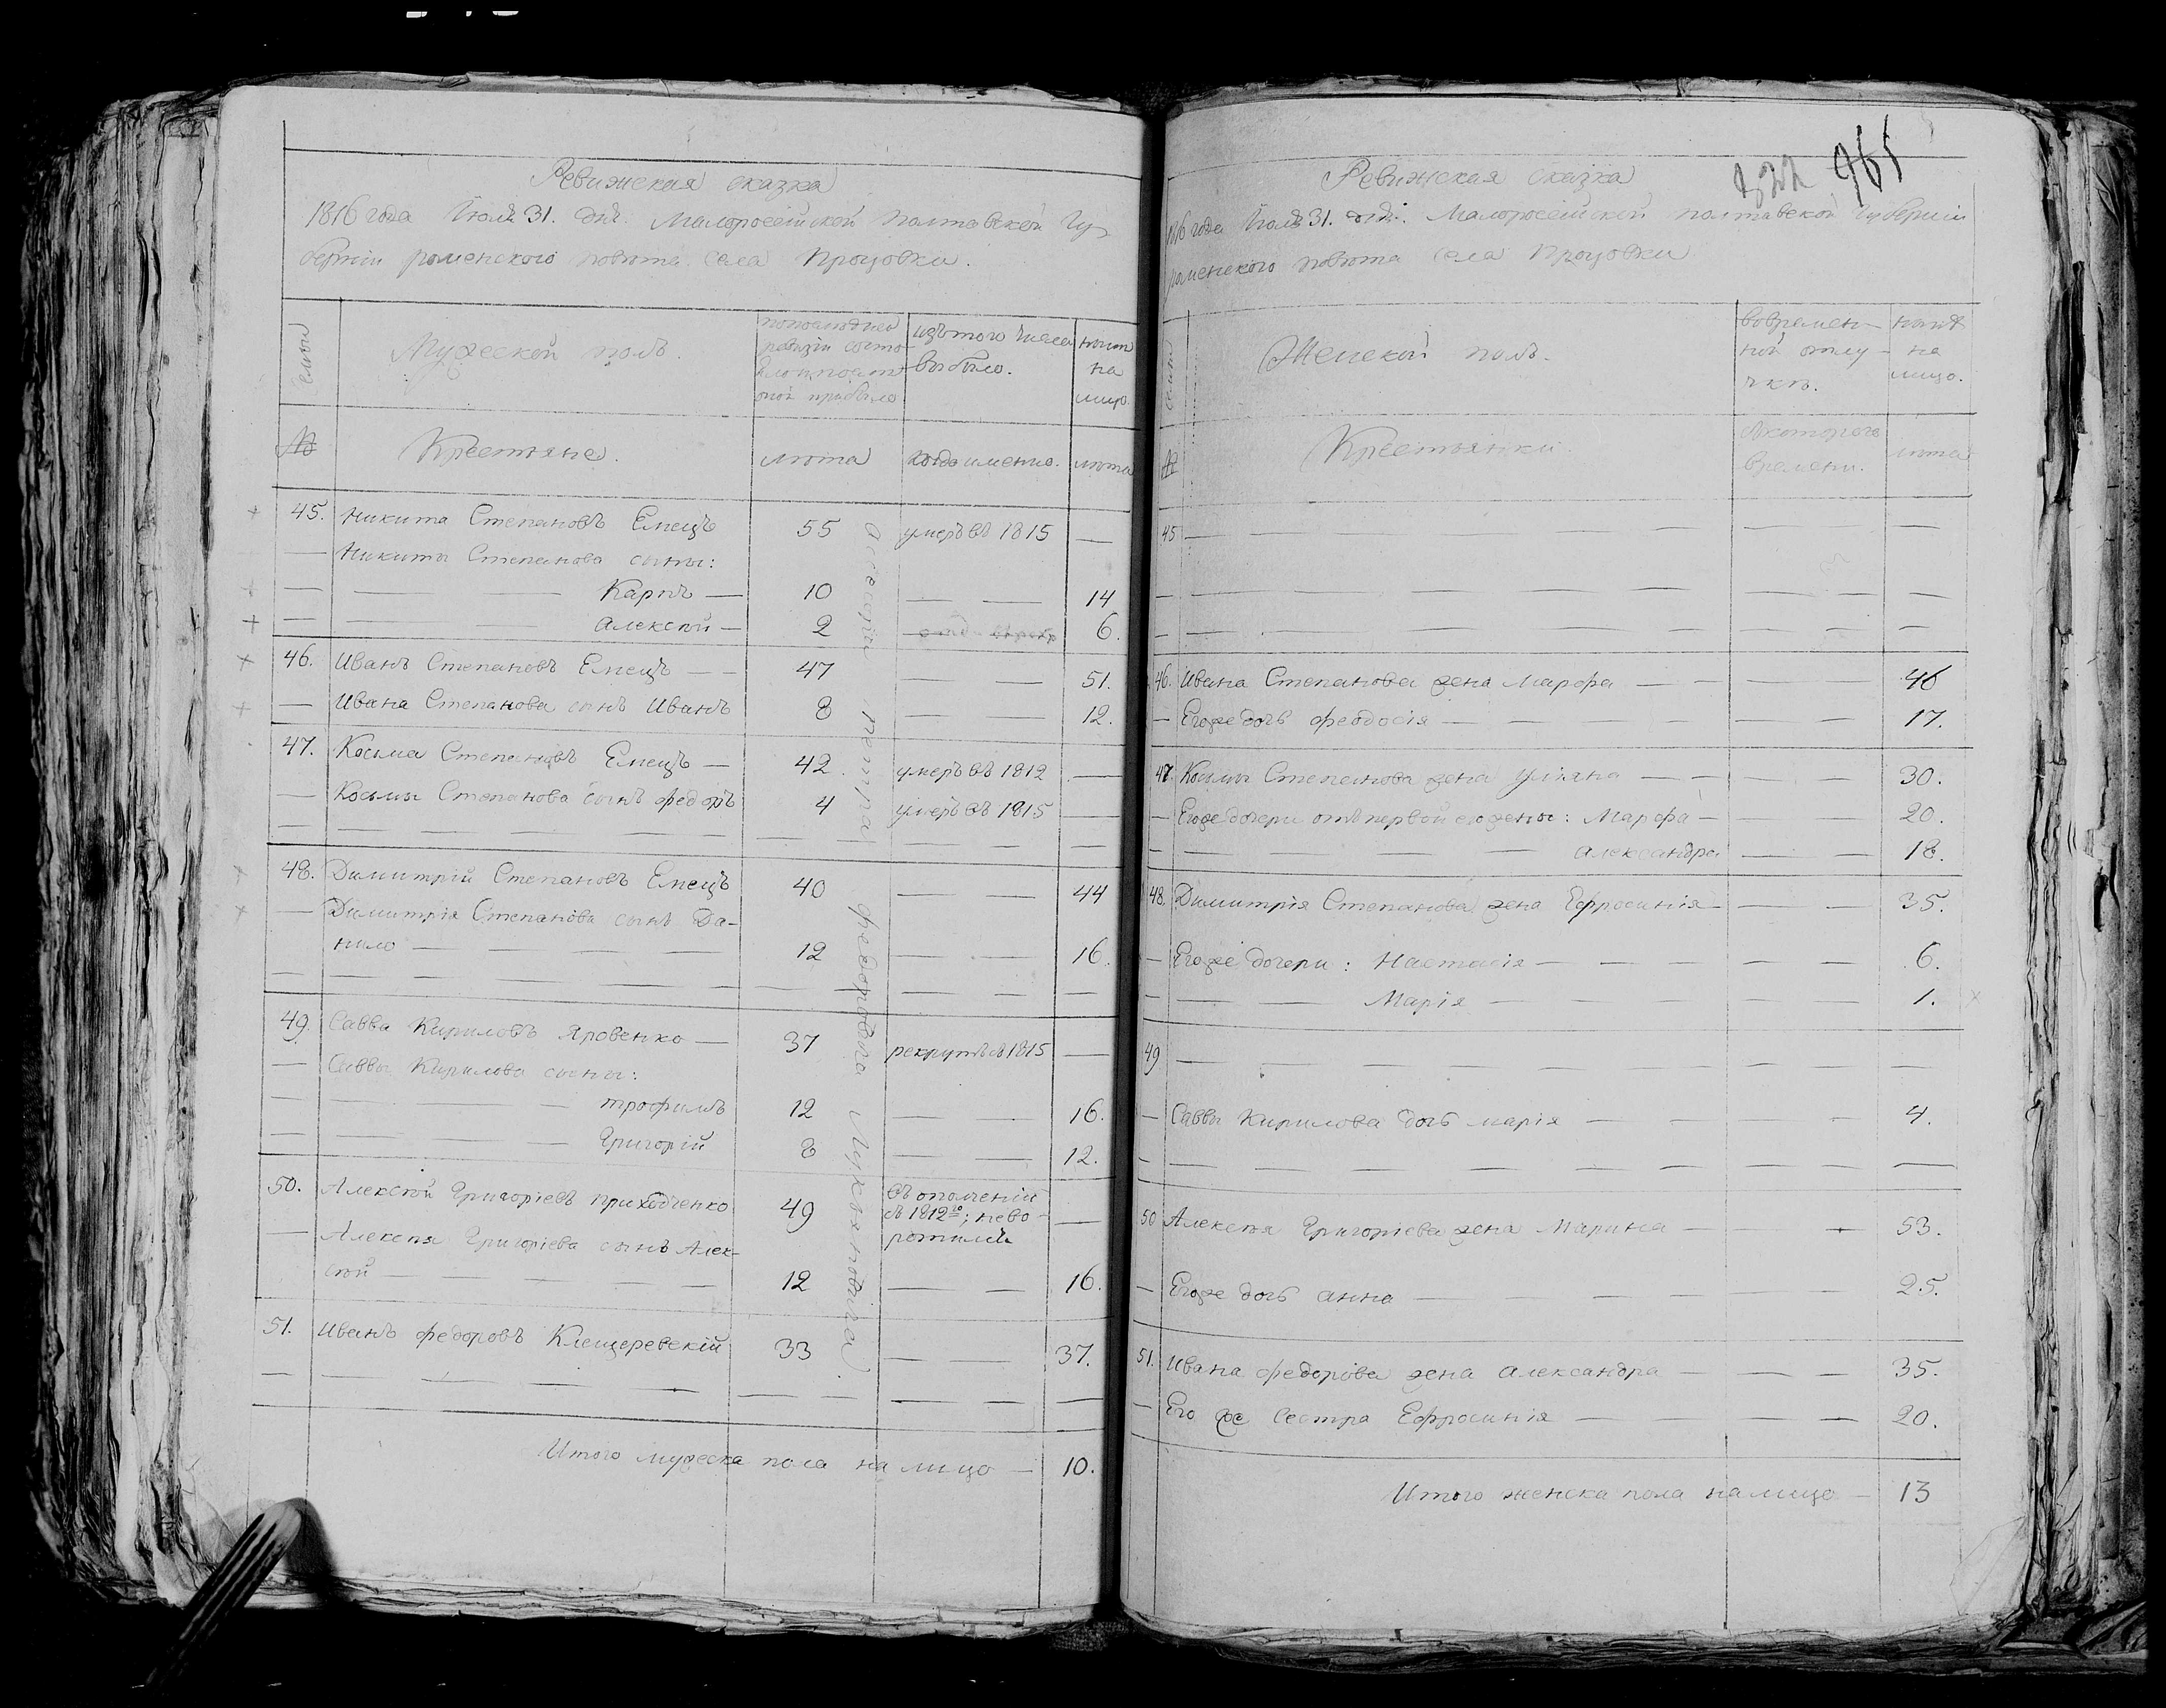 Ревижская сказка
1816 года Июля 31. дня. Малоросеійской Полтавской Гу-
берніи роменского повѣта села Процовки.
семьи
Мужеской полъ.
попоследней
ревизіи состо-
яло и после
оной прибыло
изъ того числа
выбыло.
ныне
на
лицо.
№
Крестьяне.
лѣта
когда именно.
лѣта
45. Никита Степановъ Емецъ 55 умеръ въ 1815 —
— Никиты Степанова сыны:
Карпъ — 10 — — 14
Алексѣй — 2 6.
46. Иванъ Степановъ Емецъ — — 47 — — 51.
— Ивана Степанова сынъ Иванъ 8 — — 12.
47. Косьма Степановъ Емецъ — 42. умеръ въ 1812 —
— Косьмы Степанова сынъ Федоръ 4 умеръ въ 1815 —
48. Димитрій Степановъ Емецъ 40 — — 44
— Димитрія Степанова сынъ Да-
нило — — — 12 — — 16.
49. Савва Кириловъ Яровенко — 37 рекрутъ в 1815 —
— Саввы Кирилова сыны:
Трофимъ 12 — — 16.
Григорій 8 — — 12.
50. Алексѣй Григоріевъ Приходченко 49 въ ополченіи
в 1812го; нево-
ротился —
— Алексѣя Григоріева сынъ Алек-
сѣй — — — — 12 — — 16.
51. Иванъ Федоровъ Клещеревскій 33 — — 37.
Итого мужеска пола на лицо — 10.
Федоровича Лукьяновича
322 965
Ревижская сказка
1816 года Июля 31. дня. Малоросеійской Полтавской Губерніи
роменского повѣта села Процовки
семьи
Женской полъ.
во времен-
ной отлу-
чкѣ.
нынѣ
на
лицо.
№
Крестьянки.
с котораго
времени.
лѣта
45 — — — —
46. Ивана Степанова жена Марфа — — — — 46
— Егоже дочь Феодосія — — — — 17.
47. Космы Степанова жена Уліяна — — — — 30.
— Егоже дочери отъ первой его жены: Марфа — — — 20.
Александра — — 18.
48. Димитрія Степанова жена Ефросинія — — — 35.
— Егоже дочери: Настасія — — — — — 6.
Марія — — — — 1.
49 — — — —
— Саввы Кирилова дочь Марія — — — — 4.
50 Алексѣя Григоріева жена Марина — — 53.
— Егоже дочь Анна — — — — 25.
51. Ивана Федорова жена Александра — — — 35.
— Его же сестра Ефросинія — — — 20.
Итого женска пола налицо — 13